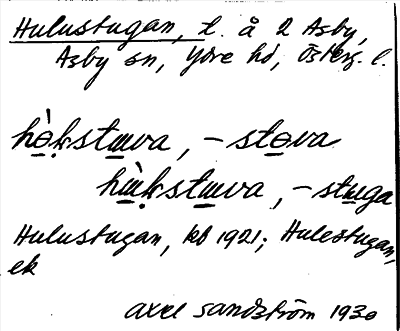 Hulustugan, t. å 2 Asby,
Asby sn, Ydre hd, Österg. l.
hòḳstɯva, -stova
hɯ̀ḳstɯva, -stɯga
Hulustugan, kb 1921; Hulestugan,
ek
Axel Sandström 1930